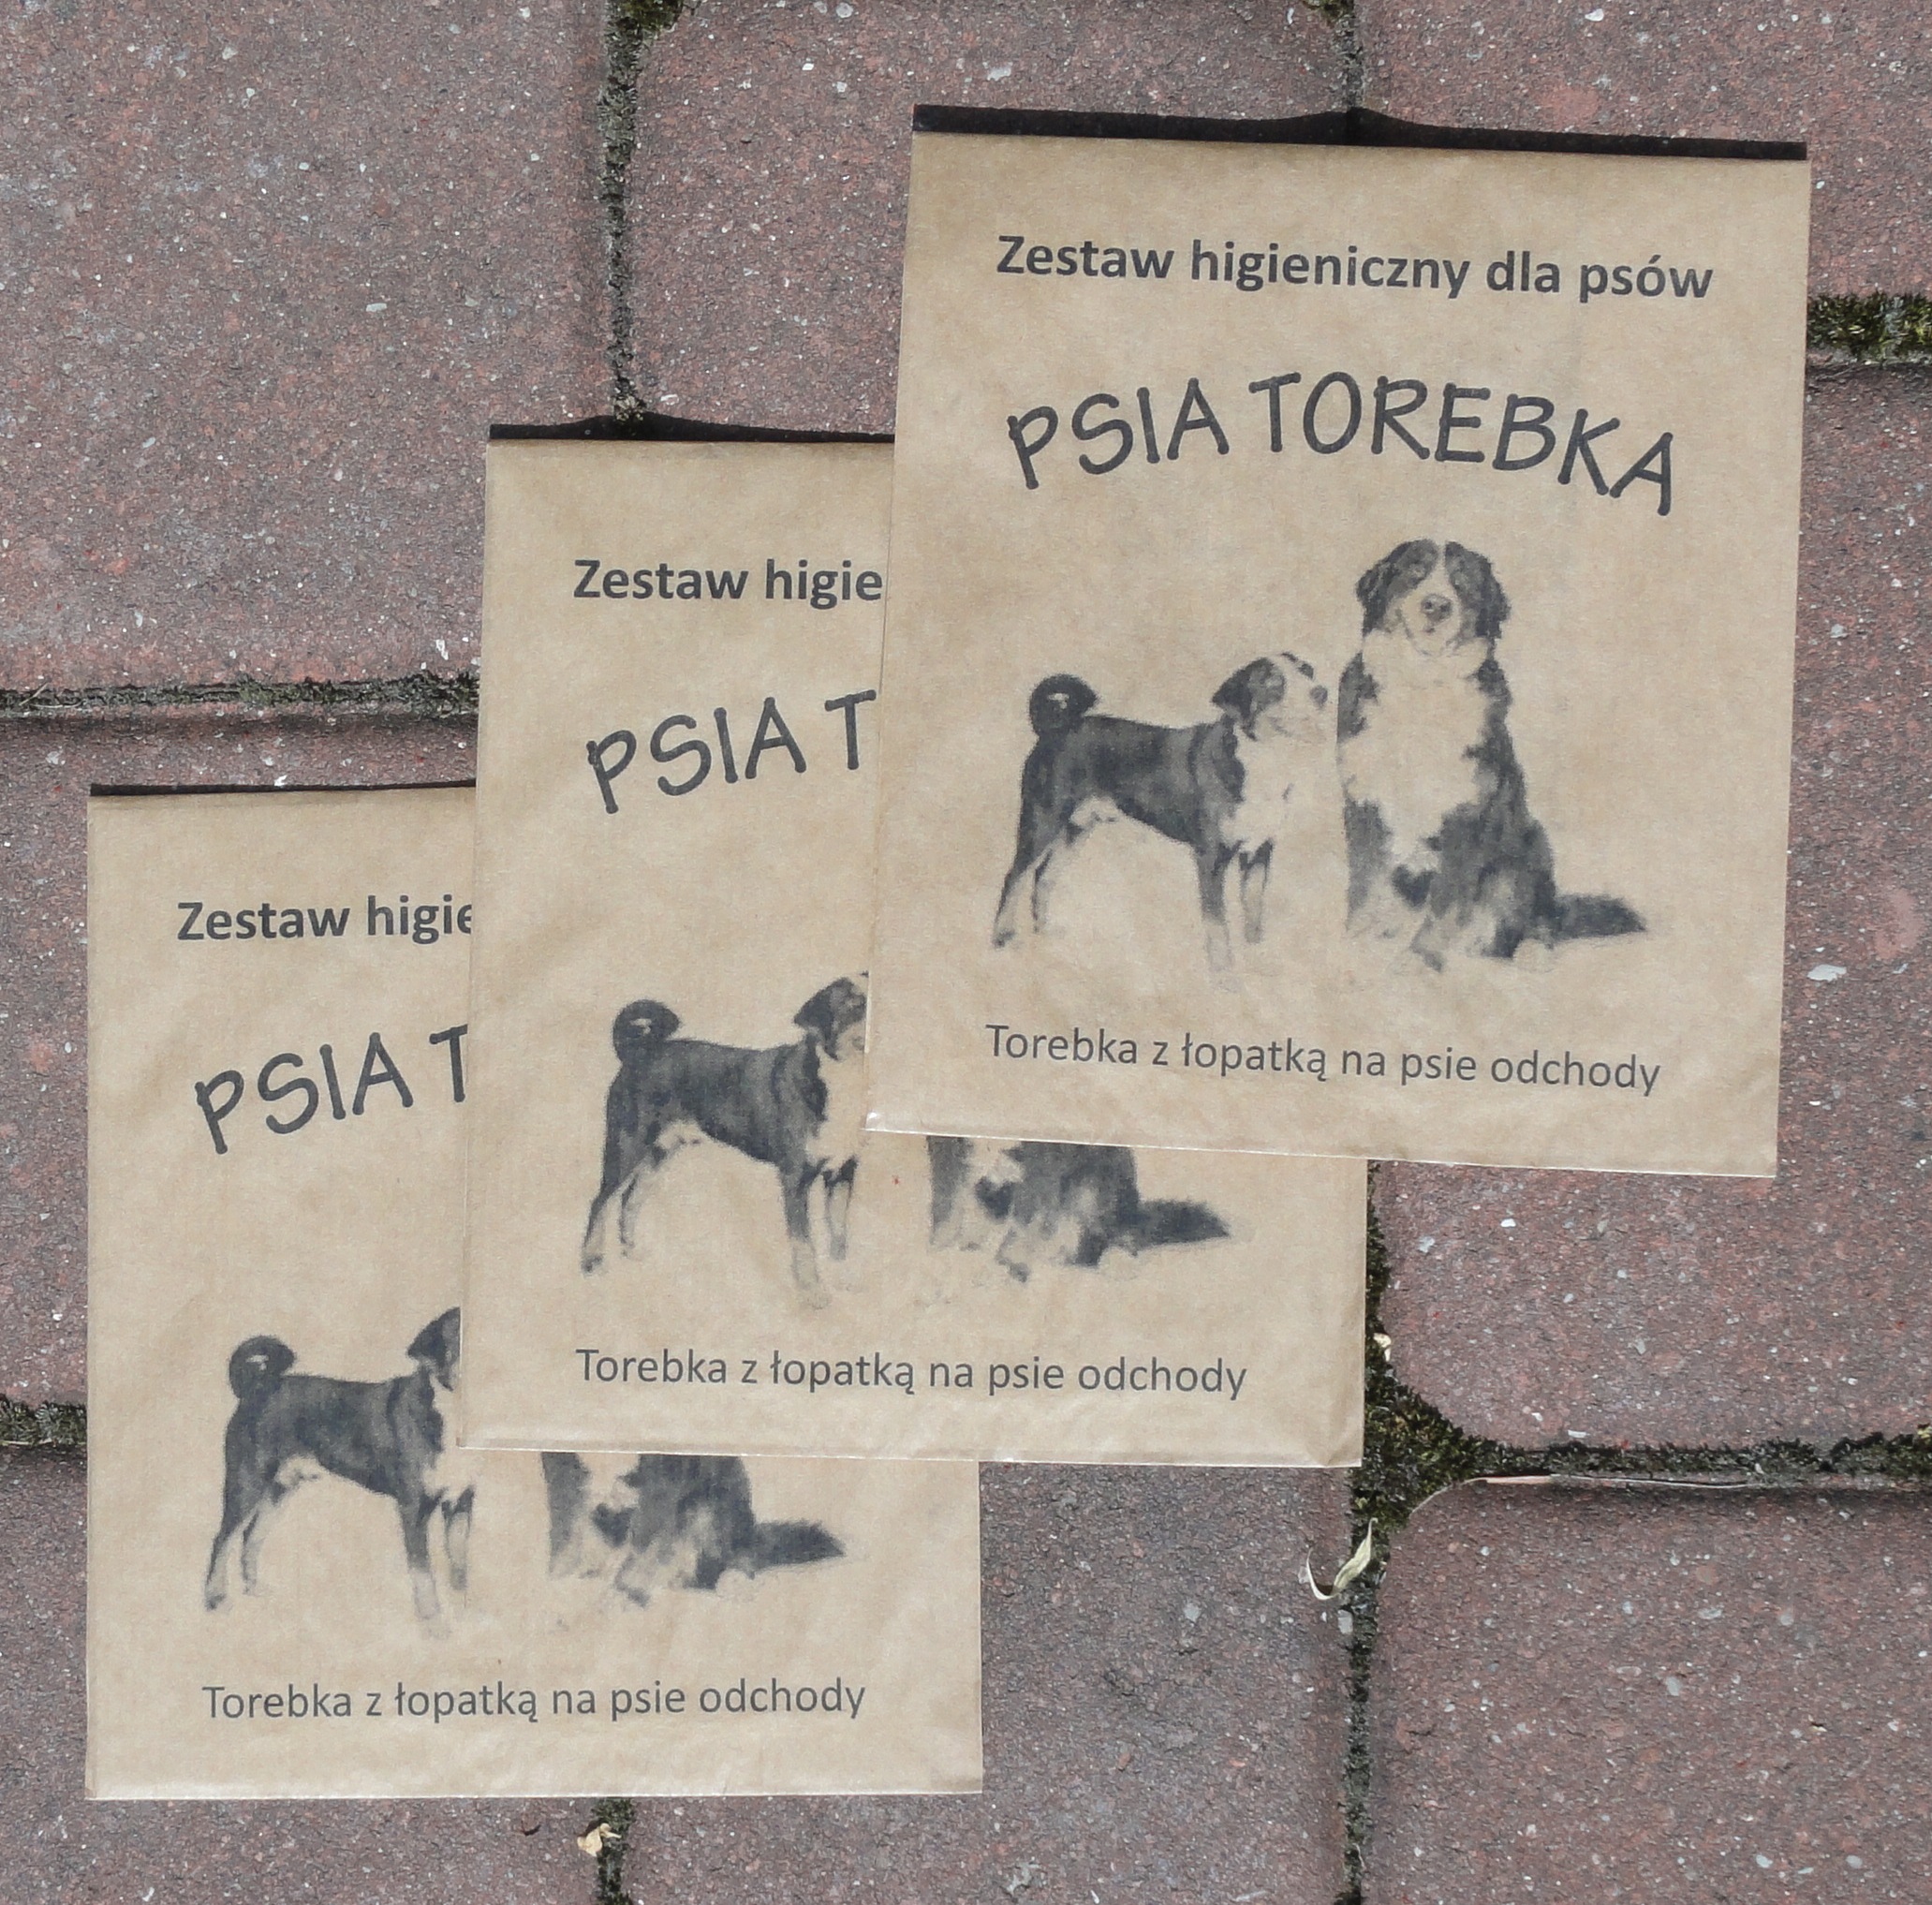 Zestaw higieniczny dla psów
PSIA TOREBKA
Torebka z łopatką na psie odchody
Zestaw higie
PSIA T
Torebka z łopatką na psie odchody
Zestaw higie
PSIA T
Torebka z łopatką na psie odchody